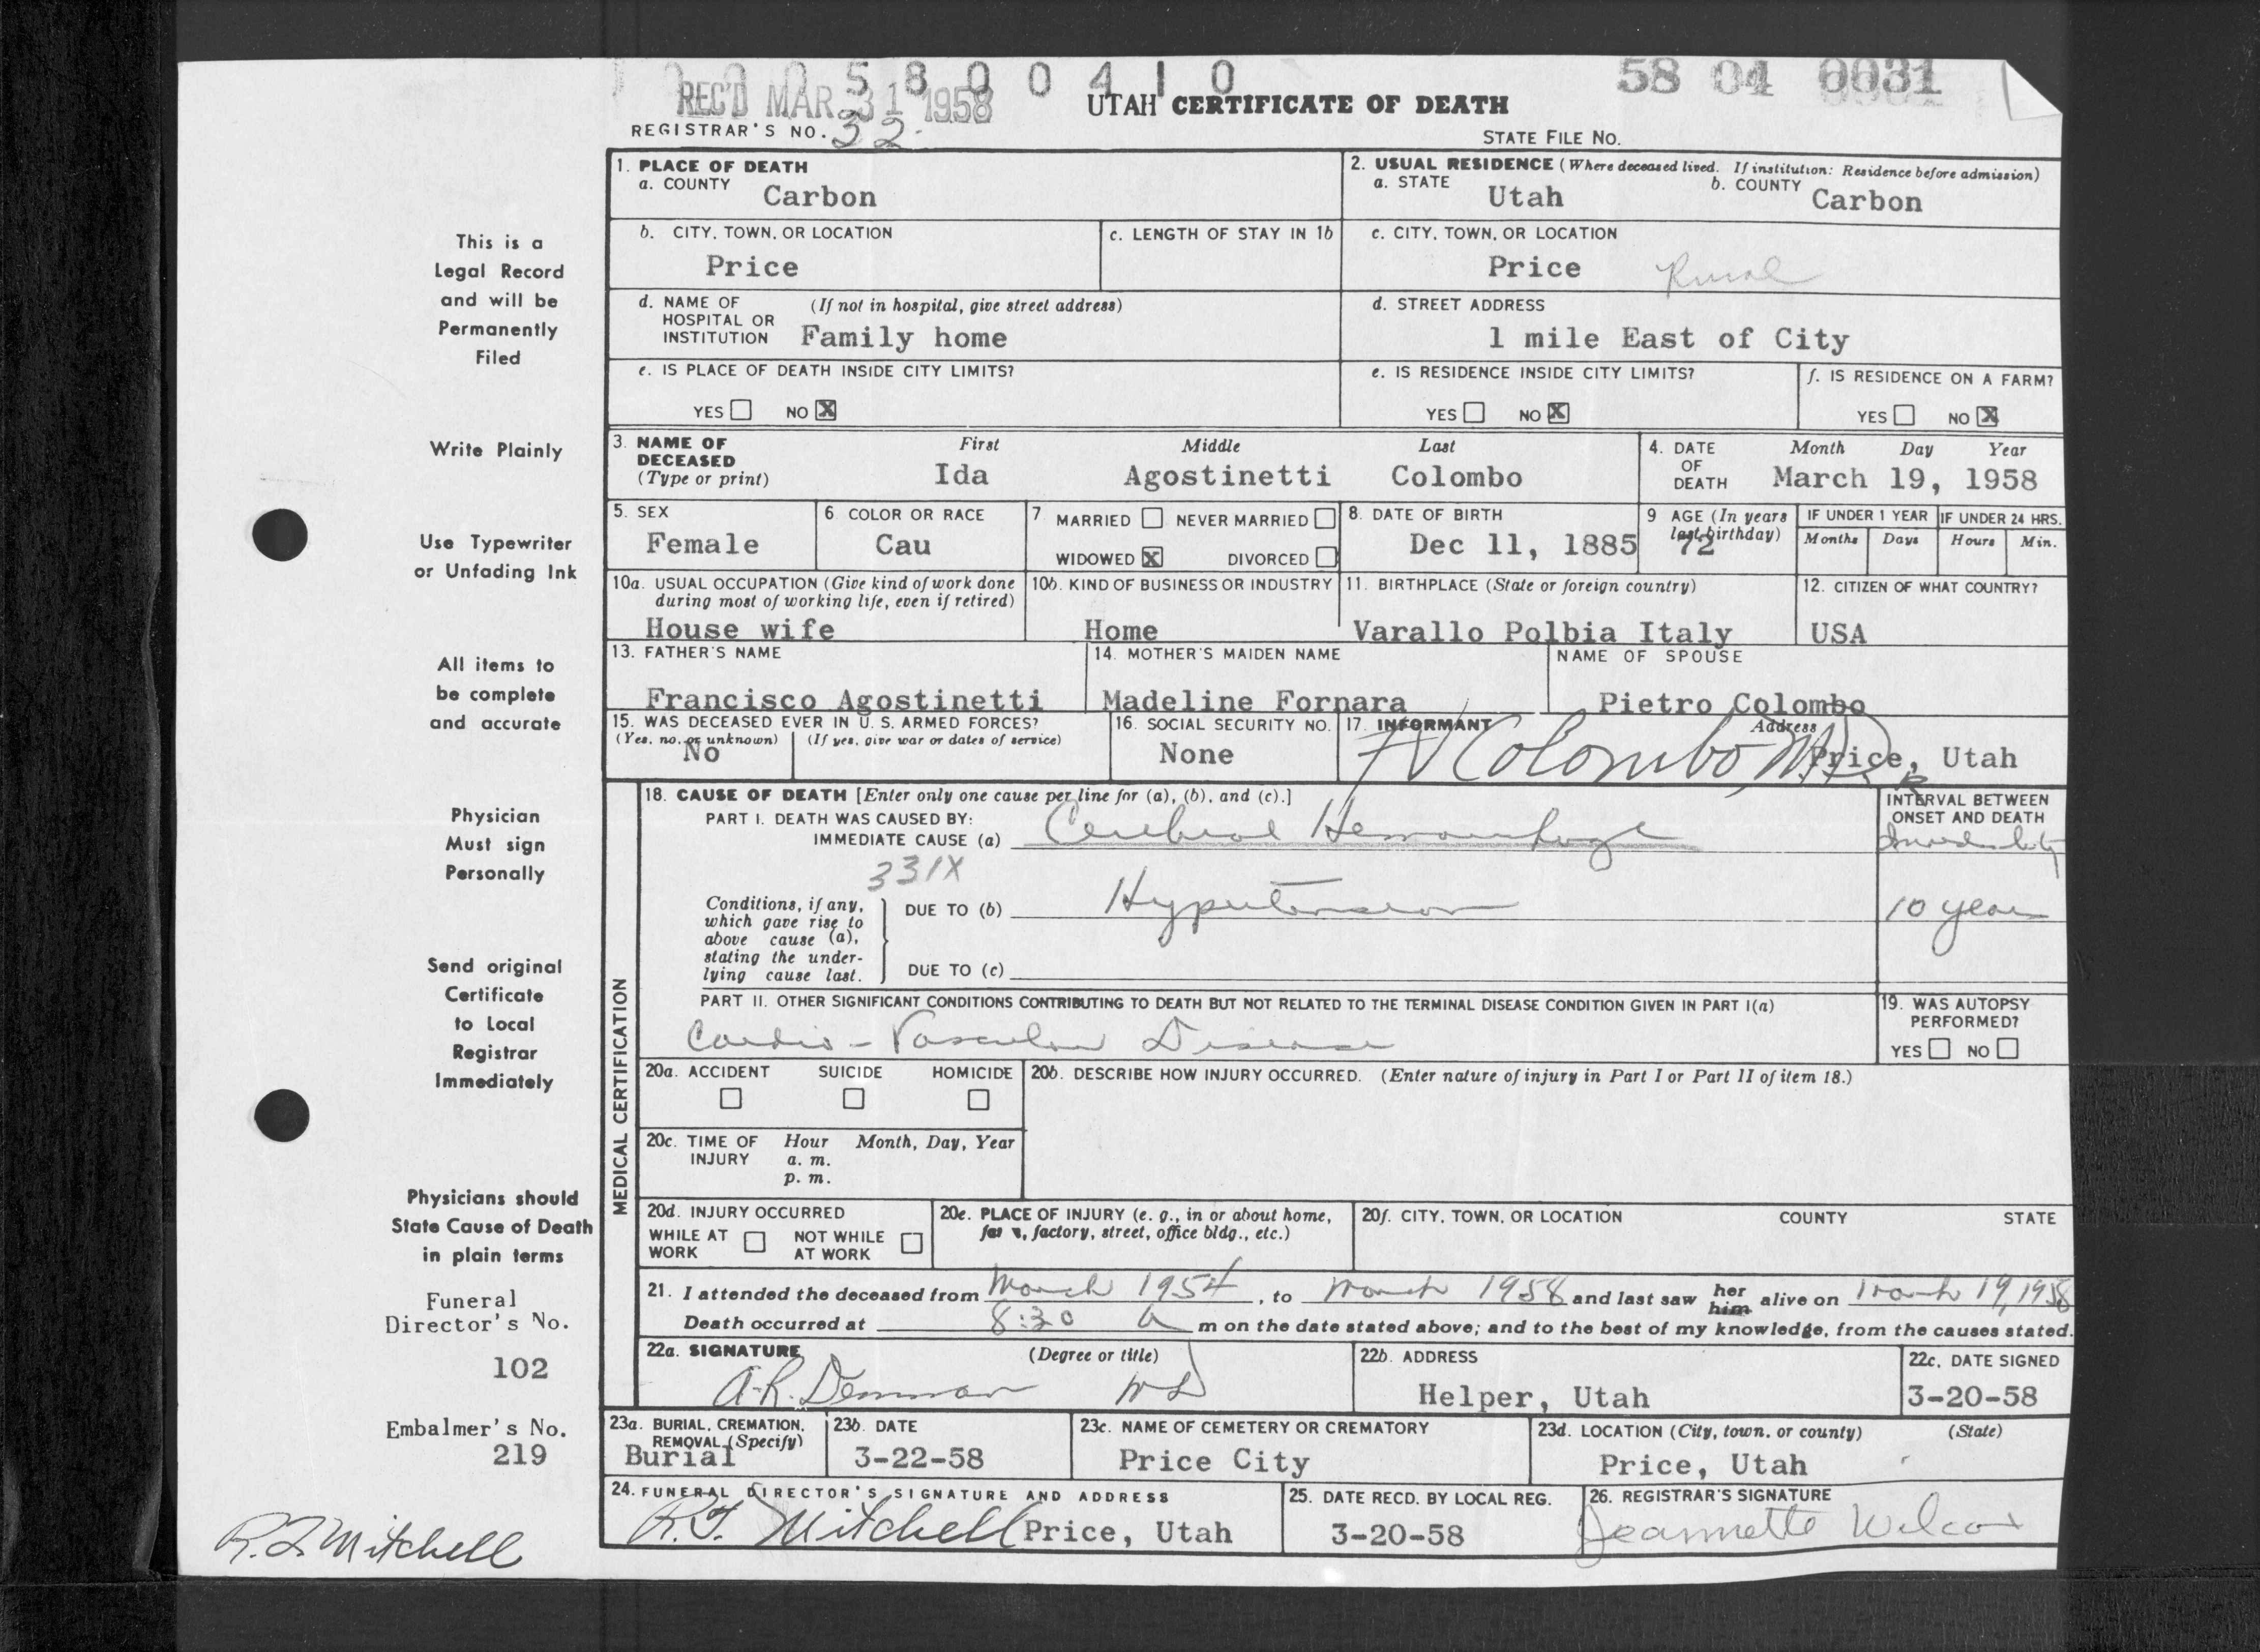 5800410
58 04 0031
REC'D MAR 31 1958
UTAH CERTIFICATE OF DEATH
REGISTRAR'S NO. 32
STATE FILE NO.
1. PLACE OF DEATH
a. COUNTY Carbon
2. USUAL RESIDENCE (Where deceased lived. If institution: Residence before admission)
a. STATE Utah b. COUNTY Carbon
b. CITY, TOWN, OR LOCATION Price
c. LENGTH OF STAY IN 1b
c. CITY, TOWN, OR LOCATION Price Rural
d. NAME OF HOSPITAL OR INSTITUTION (If not in hospital, give street address) Family home
d. STREET ADDRESS 1 mile East of City
e. IS PLACE OF DEATH INSIDE CITY LIMITS?
YES NO X
e. IS RESIDENCE INSIDE CITY LIMITS?
YES NO X
f. IS RESIDENCE ON A FARM?
YES NO X
3. NAME OF DECEASED (Type or print)
First Middle Last
Ida Agostinetti Colombo
4. DATE OF DEATH Month Day Year
March 19, 1958
5. SEX Female
6 COLOR OR RACE Cau
7 MARRIED NEVER MARRIED
WIDOWED X DIVORCED
8. DATE OF BIRTH Dec 11, 1885
9 AGE (In years last birthday) 72
IF UNDER 1 YEAR Months Days
IF UNDER 24 HRS. Hours Min.
10a. USUAL OCCUPATION (Give kind of work done during most of working life, even if retired)
House wife
10b. KIND OF BUSINESS OR INDUSTRY
Home
11. BIRTHPLACE (State or foreign country)
Varallo Polbia Italy
12. CITIZEN OF WHAT COUNTRY?
USA
13. FATHER'S NAME
Francisco Agostinetti
14. MOTHER'S MAIDEN NAME
Madeline Fornara
NAME OF SPOUSE
Pietro Colombo
15. WAS DECEASED EVER IN U. S. ARMED FORCES?
(Yes, no, or unknown) (If yes, give war or dates of service)
No
16. SOCIAL SECURITY NO.
None
17. INFORMANT Address
FV Colombo M.D. Price, Utah
MEDICAL CERTIFICATION
18. CAUSE OF DEATH [Enter only one cause per line for (a), (b), and (c).]
PART I. DEATH WAS CAUSED BY:
IMMEDIATE CAUSE (a) Cerebral Hemorrhage
331X
INTERVAL BETWEEN ONSET AND DEATH
Conditions, if any, which gave rise to above cause (a), stating the underlying cause last.
DUE TO (b) Hypertension
10 years
DUE TO (c)
PART II. OTHER SIGNIFICANT CONDITIONS CONTRIBUTING TO DEATH BUT NOT RELATED TO THE TERMINAL DISEASE CONDITION GIVEN IN PART I(a)
Cardio-Vascular Disease
19. WAS AUTOPSY PERFORMED?
YES NO
20a. ACCIDENT SUICIDE HOMICIDE
20b. DESCRIBE HOW INJURY OCCURRED. (Enter nature of injury in Part I or Part II of item 18.)
20c. TIME OF INJURY Hour Month, Day, Year
a. m.
p. m.
20d. INJURY OCCURRED
WHILE AT WORK NOT WHILE AT WORK
20e. PLACE OF INJURY (e. g., in or about home, farm, factory, street, office bldg., etc.)
20f. CITY, TOWN, OR LOCATION COUNTY STATE
21. I attended the deceased from March 1954, to March 1958 and last saw her him alive on March 19, 1958
Death occurred at 8:30 a m on the date stated above; and to the best of my knowledge, from the causes stated.
22a. SIGNATURE (Degree or title)
A.R. Demman MD
22b. ADDRESS
Helper, Utah
22c. DATE SIGNED
3-20-58
23a. BURIAL, CREMATION, REMOVAL (Specify)
Burial
23b. DATE
3-22-58
23c. NAME OF CEMETERY OR CREMATORY
Price City
23d. LOCATION (City, town, or county) (State)
Price, Utah
24. FUNERAL DIRECTOR'S SIGNATURE AND ADDRESS
R.F. Mitchell Price, Utah
25. DATE RECD. BY LOCAL REG.
3-20-58
26. REGISTRAR'S SIGNATURE
Jeannette Wilcox
This is a
Legal Record
and will be
Permanently
Filed
Write Plainly
Use Typewriter
or Unfading Ink
All items to
be complete
and accurate
Physician
Must sign
Personally
Send original
Certificate
to Local
Registrar
Immediately
Physicians should
State Cause of Death
in plain terms
Funeral
Director's No.
102
Embalmer's No.
219
R.F. Mitchell